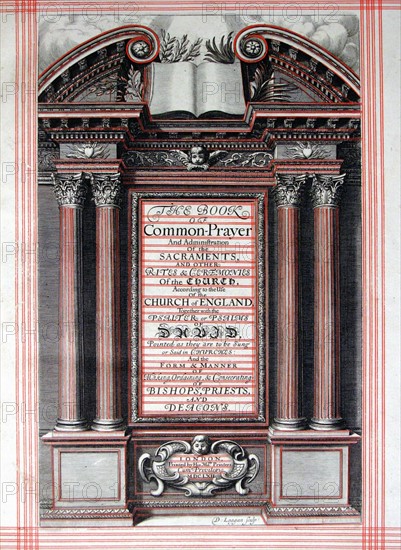 THE BOOK
OF
Common-Prayer
And Administration
Of the
SACRAMENTS,
AND OTHER
RITES & CEREMONIES
Of the CHURCH,
According to the Use
Of the
CHURCH of ENGLAND,
Together with the
PSALTER or PSALMS
OF
DAVID,
Pointed as they are to be Sung
or Said in CHURCHES:
And the
FORM & MANNER
OF
Making, Ordaining, & Consecrating
OF
BISHOPS, PRIESTS,
AND
DEACONS.
LONDON
Printed by His Ma.ties Printers
Cum Privilegio
D. Loggan sculp